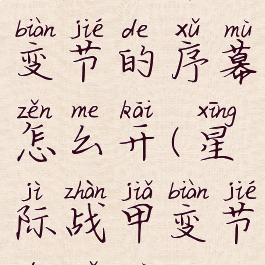 biàn jié de xǔ mù
变节的序幕
zěn me kāi xīng
怎么开(星
jì zhàn jiǎ biàn jié
际战甲变节